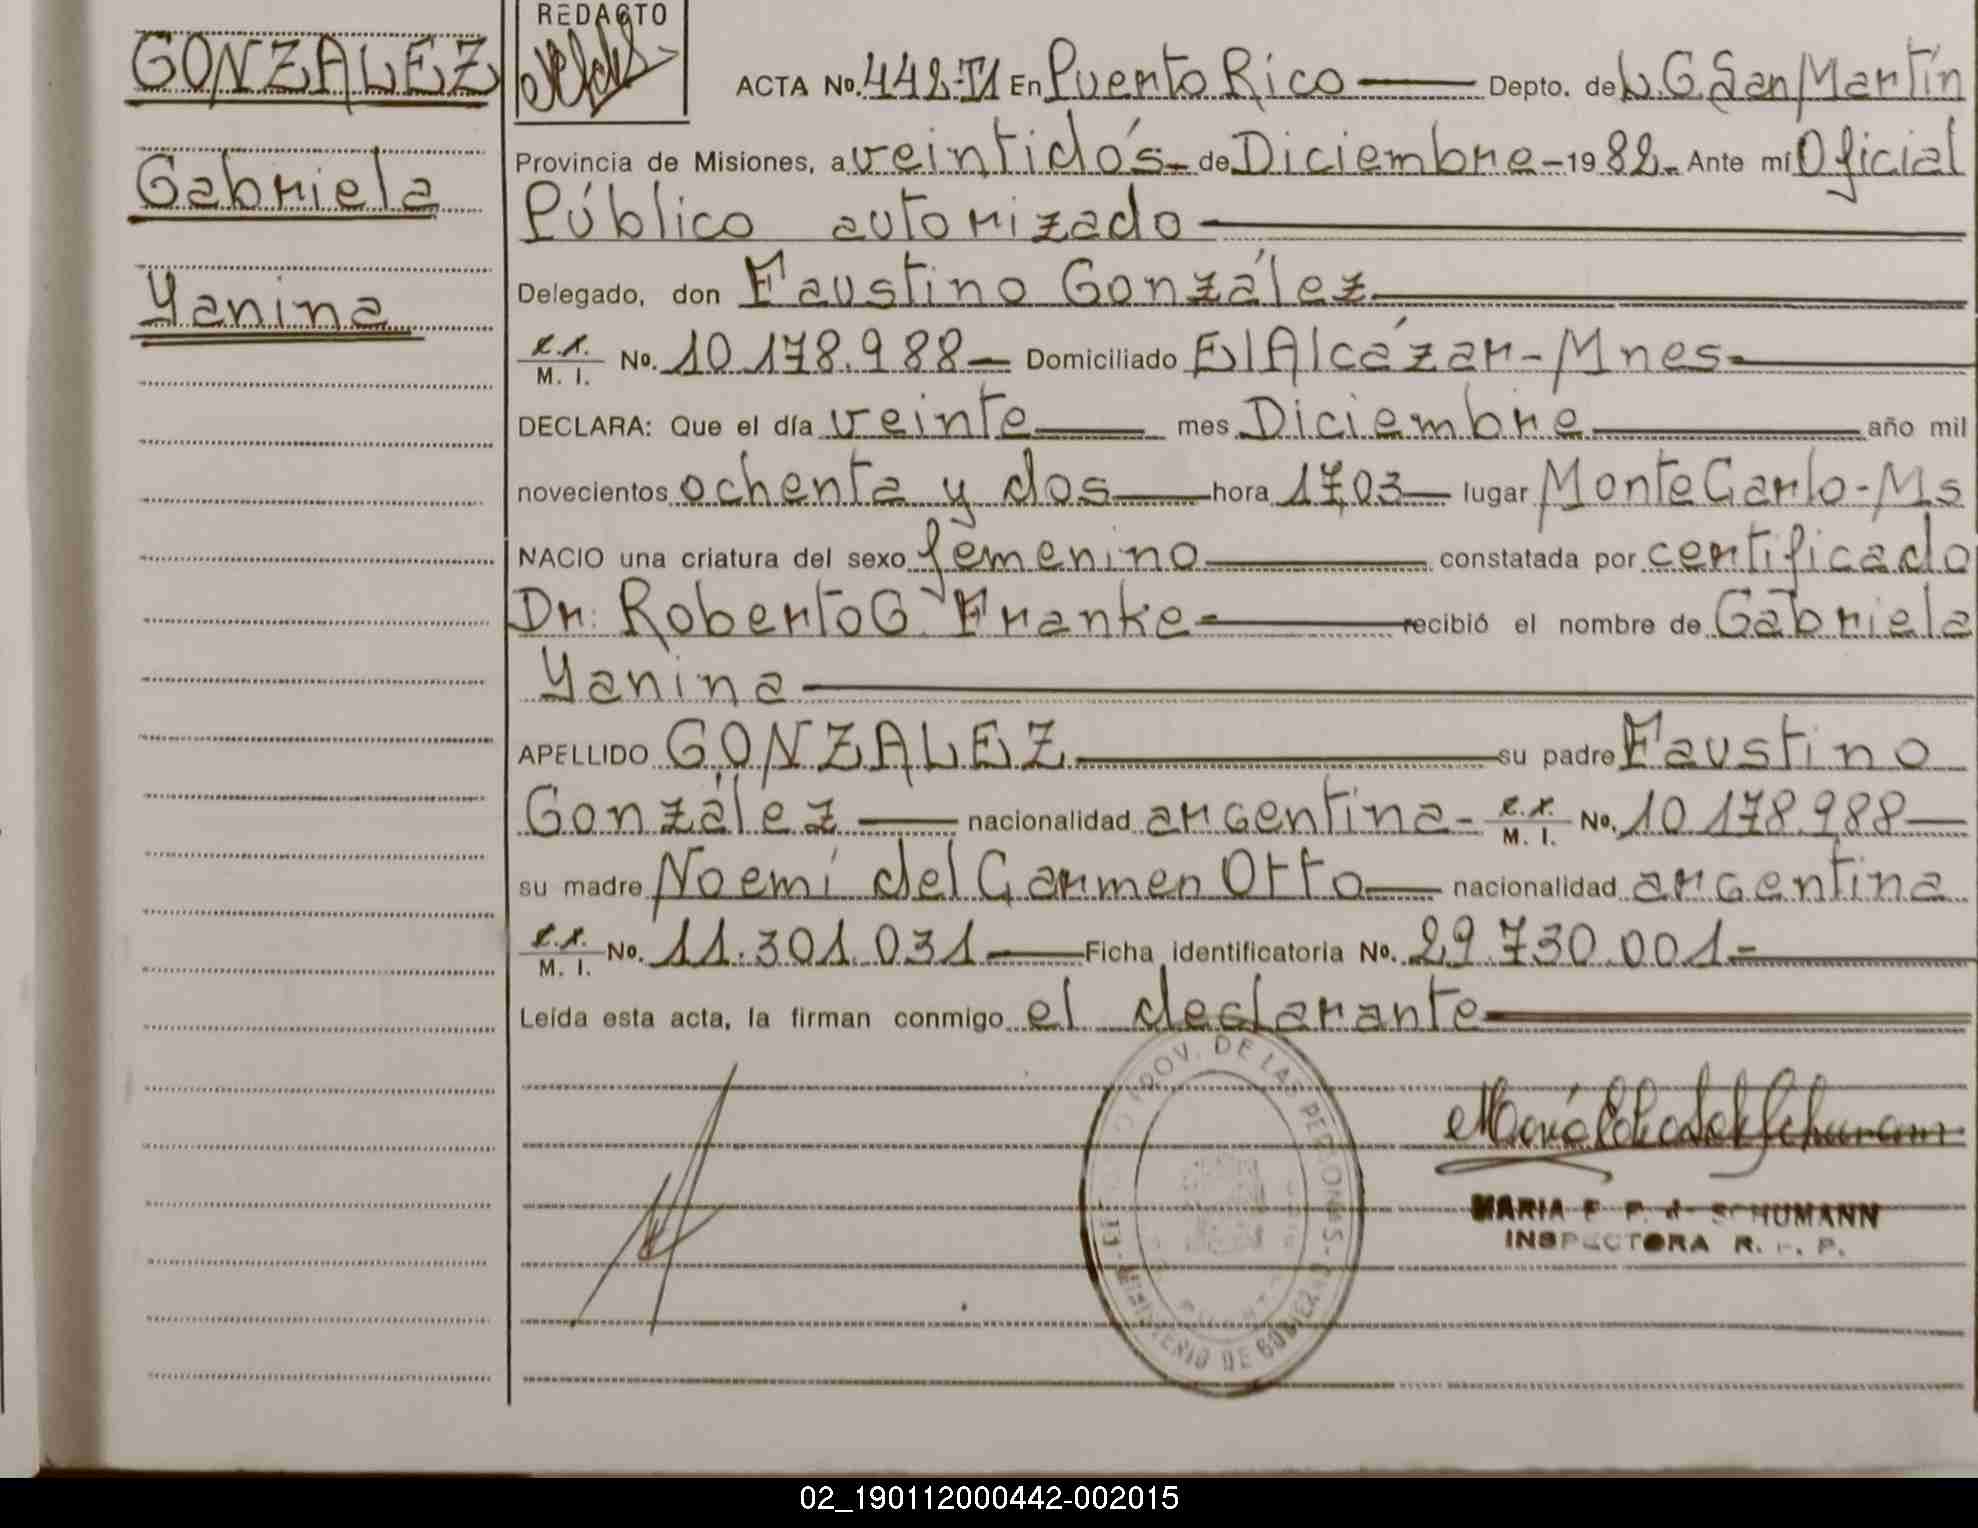 GONZALEZ
Gabriela
Yanina
REDACTO
ACTA No. 442-T1 En Puerto Rico Depto. de L.G.San Martín
Provincia de Misiones, a veintidós- de Diciembre - 19 82. Ante mí Oficial
Público autorizado
Delegado, don Faustino González
M. I. No. 10.178.988 Domiciliado El Alcázar - Mnes
DECLARA: Que el día veinte mes Diciembre año mil
novecientos ochenta y dos hora 17,03 lugar Monte Carlo - Ms
NACIO una criatura del sexo femenino constatada por certificado
Dr. Roberto G. Franke recibió el nombre de Gabriela
Yanina
APELLIDO GONZALEZ su padre Faustino
González nacionalidad argentina - M. I. No. 10.178.988
su madre Noemí del Carmen Otto nacionalidad argentina
M. I. No. 11.301.031 Ficha identificatoria No. 29.730.001-
Leída esta acta, la firman conmigo el declarante
PROV. DE LAS PERSONAS
MINISTERIO DE GOBIERNO
MARIA E. P. de SCHUMANN
INSPECTORA R. P. P.
02_190112000442-002015